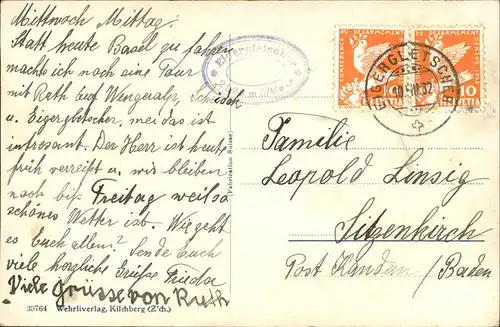 Mittwoch Mittag.
Statt heute Basel zu fahren
macht ich noch eine Tour
mit Ruth auf Wengeralp, Scheidegg
u. Eigergletscher, mer das ist
intresant. Der Herr ist heute
früh verreißt u. wir bleiben
noch biss Freitag weil so
schönes Wetter ist. Wie geht
es Euch allen? Sende Euch
viele herzliche Grüße Frieda
Viele Grüsse von Ruth
33764 Wehrliverlag, Kilchberg (Z'ch.)
(Fabrication Suisse)
* Eigergletscher *
m ü/Meer
CONFERENCE DU DESARMEMENT
DU DESARMEMENT
EIGERGLETSCHER
10 HELVETIA
Familie
Leopold Linsig
Sitzenkirch
Post Kandern / Baden